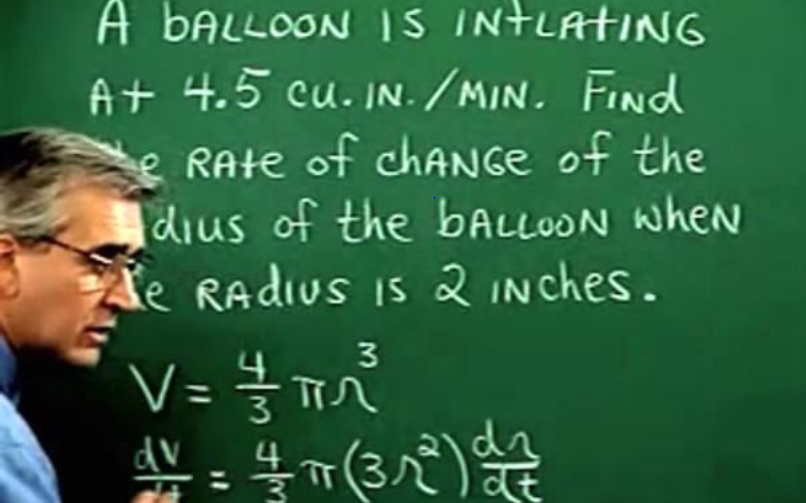 A BALLOON IS INFLATING
At 4.5 CU. IN./MIN. FIND
RATE of CHANGE of the
of the BALLOON WHEN
RADIUS IS 2 INCHES.
V = 4/3 πr³
dV/dt = 4/3 π(3r²) dr/dt